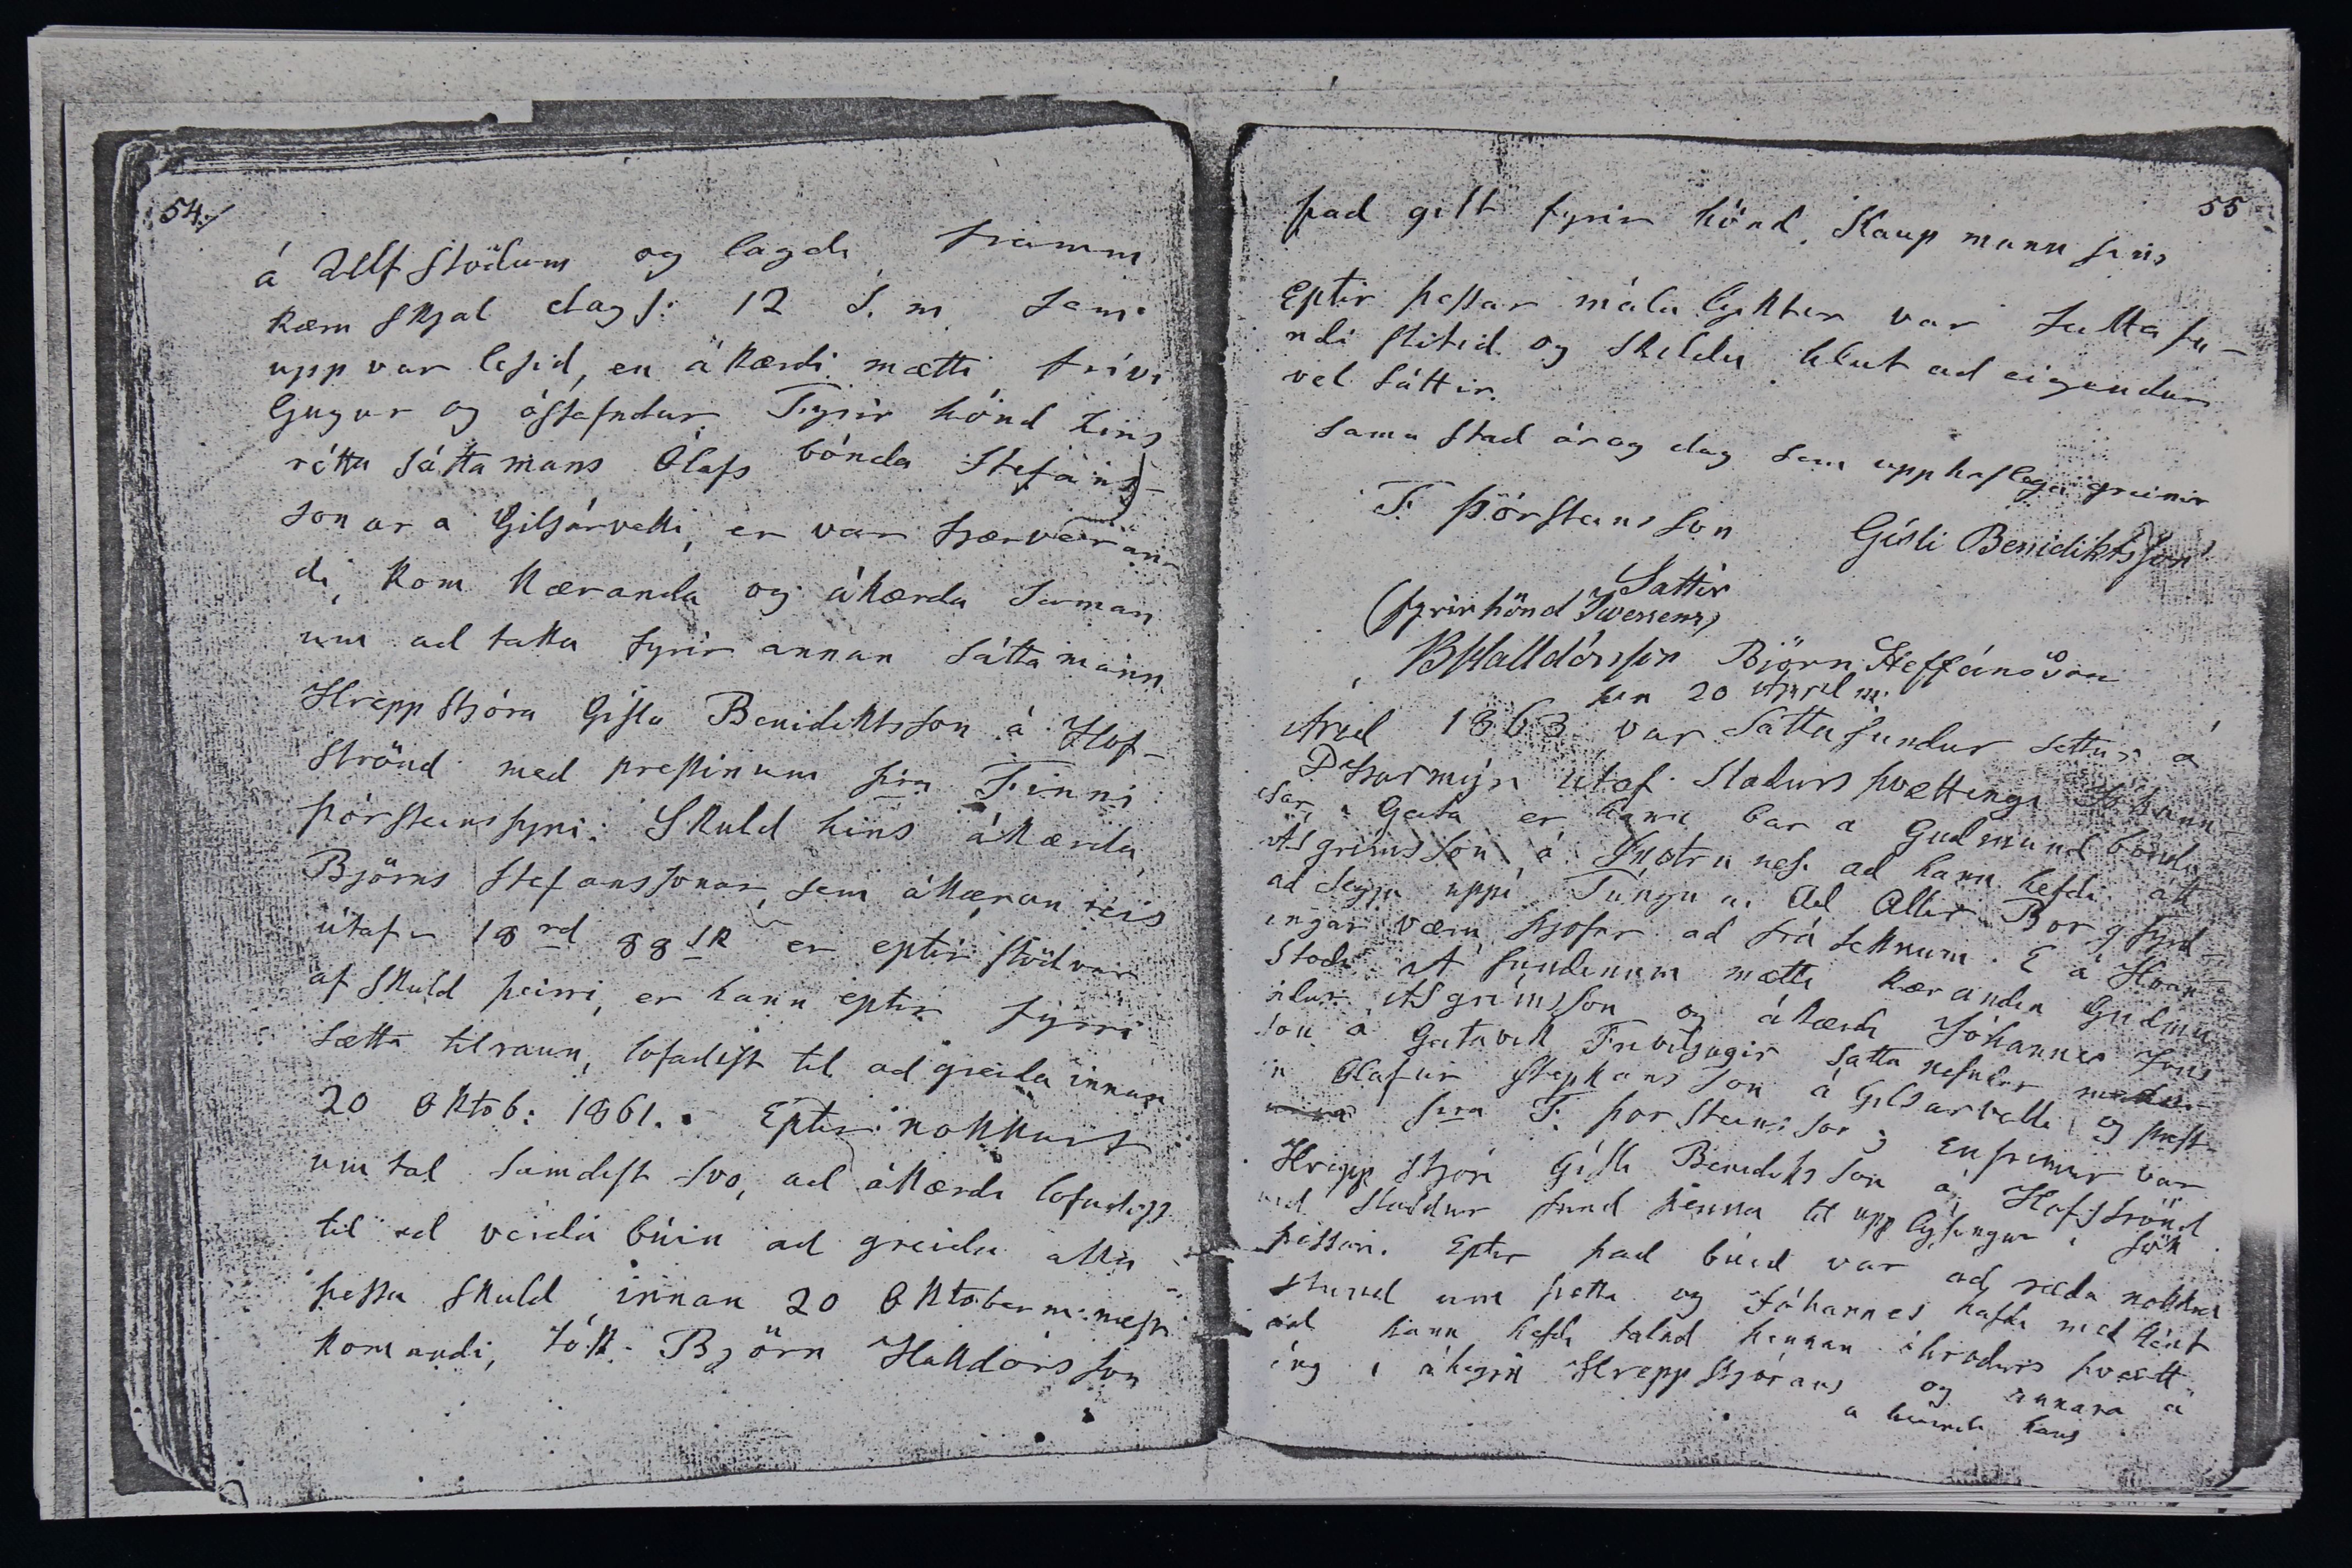 54./
á Ulfstöðum og lagdi framm
kæru skjal dags: 12 s. m sem
upp var lesid, en ákærdi mætti frivi
ljugur og óstefndur. Fyrir hönd hins
rétta sáttamans Ólafs bónda Stefáns-
sonar a Gilsárvelli, er var fjærveran-
di, kom Kæranda og ákærda saman
um ad taka fyrir annan sáttamann
Hreppstjóra Gísla Benidiktsson á Hof-
strönd med prestinum síra Finni
þórsteinssyni. Skuld hins ákærda
Björns Stefanssonar, sem ákæran reis
útaf 18 rd 88 sk er eptir stödvar
af skuld þeirri, er hann eptir fyrri
sætta tilraun, lofadist til ad greida innan
20 Oktob: 1861. Eptir nokkurt
umtal samdist svo, ad ákærdi lofadist
til ad verda búin ad greida alla
þessa skuld innan 20 Oktober m: næst
komandi, tók Björn Halldórsson
55
þad gilt fyrir hönd Kaupmann sins
Eptir þessar mála lyktir var sáttafu-
ndi slitid og skildu hlut ad eigundur
vel sáttir.
Sama stad ár og dag sem upphaflega greinir
F. Þórsteinsson Gísli Benidiktsson
Sattir
(fyrir hönd Iwersens)
BHalldórsson Björn Steffánsson
hin 20 April m.
Arid 1863 var sáttafundur settur á
Dysjarmýri útaf sladurs þvættingi Jóhann-
esar i Geita er hann bar a Gudmund bónda
Asgrimsson á Snotrunesi ad hann hefdi átt
ad segja uppi Tungu Ad Allir Borgfyrd
ingar væru þjofar ad frá teknum E á Hvan
stodi A fundinum mætti kærandin Gudmu
ndur Asgrimsson og ákærdi Jóhannes Jons
son á Geitavik Friviljugir Satta nefndar
n Olafur Stephansson á Gilsarvelli og prest
sira F. þorsteinsson, Enfremur var
Hreppstjóri Gísli Benediktsson á Hofströnd
vid staddur fund þennan til upplysingar i sök
þessari. Eptir þad búid var ad ræda nokkra
stund um þetta og Jóhannes hafdi med kent
ad hann hefdi talad þennan óhrodurs þvætt
ing i áheyrn Hreppstjórans og annara á
a heimili hans